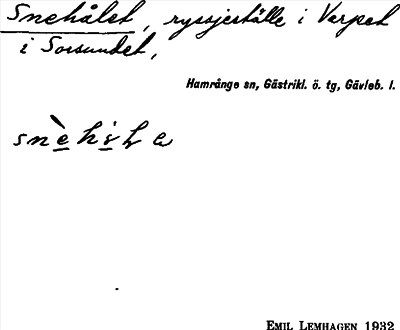 Snehålet, ryssjeställe i Verpet
i Sorsundet,
Hamrånge sn, Gästrikl. ö. tg, Gävleb. l.
EMIL LEMHAGEN 1932